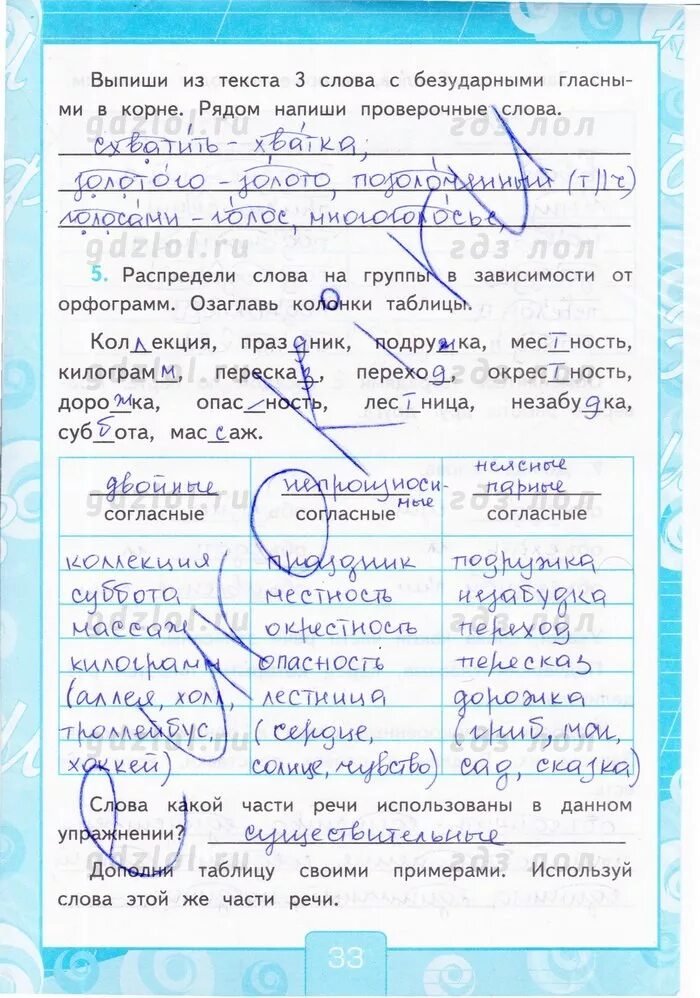 Выпиши из текста 3 слова с безударными гласны-
ми в корне. Рядом напиши проверочные слова.
gdzlol.ru гдз лол
схватить – хватка,
золотого – золото, позолоченный (т||ч)
голосами – голос, многоголосье,
gdzlol.ru гдз лол
5. Распредели слова на группы в зависимости от
орфограмм. Озаглавь колонки таблицы.
Коллекция, праздник, подружка, местность,
gdzlol.ru гдз лол
килограмм, пересказ, переход, окрестность,
дорожка, опас_ность, лестница, незабудка,
суббота, массаж.
двойные непроизноси- неясные
мые парные
gdzlol.ru гдз лол
согласные согласные согласные
коллекция праздник подружка
gdzlol.ru гдз лол
суббота местность незабудка
массаж окрестность переход
килограмм опасность пересказ
(аллея, холл, лестница дорожка
троллейбус, (сердце, (гриб,
хоккей) солнце, чувство) сад, сказка)
Слова какой части речи использованы в данном
упражнении? существительные
gdzlol.ru гдз лол
Дополни таблицу своими примерами. Используй
слова этой же части речи.
33